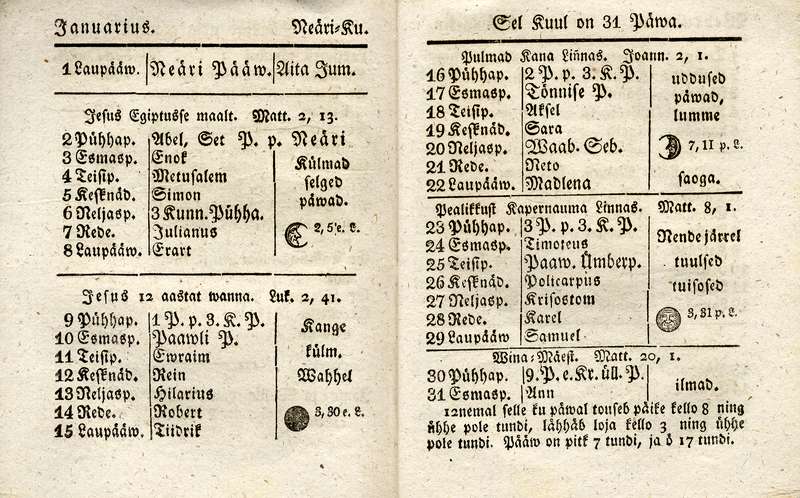 Januarius. Neäri-Ku.
1 Laupääw. Neäri Pääw. Aita Jum.
Jesus Egiptusse maalt. Matt. 2, 13.
2 Pühhap. Abel, Set P. p. Neäri
3 Esmasp. Enok Külmad
4 Teisip. Metusalem selged
5 Kesknäd. Simon päwad.
6 Neljasp. 3 Kunn. Pühha.
7 Rede. Julianus 2, 5 e. L.
8 Laupääw. Erart
Jesus 12 aastat wanna. Luk. 2, 41.
9 Pühhap. 1 P. p. 3. K. P. Kange
10 Esmasp. Paawli P. külm.
11 Teisip. Ewraim
12 Kesknäd. Rein Wahhel
13 Neljasp. Hilarius
14 Rede. Robert 3, 30 e. L.
15 Laupääw. Tiidrik
Sel Kuul on 31 Päwa.
Pulmad Kana Liñnas. Joann. 2, 1.
16 Pühhap. 2 P. p. 3. K. P. uddused
17 Esmasp. Tönnise P. päwad,
18 Teisip. Aksel lumme
19 Kesknäd. Sara
20 Neljasp. Waab. Seb. 7, 11 p. L.
21 Rede. Neto
22 Laupääw. Madlena saoga.
Pealikkust Kapernauma Linnas. Matt. 8, 1.
23 Pühhap. 3 P. p. 3. K. P. Nende järrel
24 Esmasp. Timoteus
25 Teisip. Paaw. Ümberp. tuulsed
26 Kesknäd. Policarpus tuisosed
27 Neljasp. Krisostom
28 Rede. Karel 3, 31 p. L.
29 Laupääw Samuel
Wina-Mäest. Matt. 20, 1.
30 Pühhap. 9. P. e. Kr. üll. P. ilmad.
31 Esmasp. Ann
12nemal selle ku päwal touseb päike kello 8 ning
ühhe pole tundi, lähhäb loja kello 3 ning ühhe
pole tundi. Pääw on pitk 7 tundi, ja ö 17 tundi.